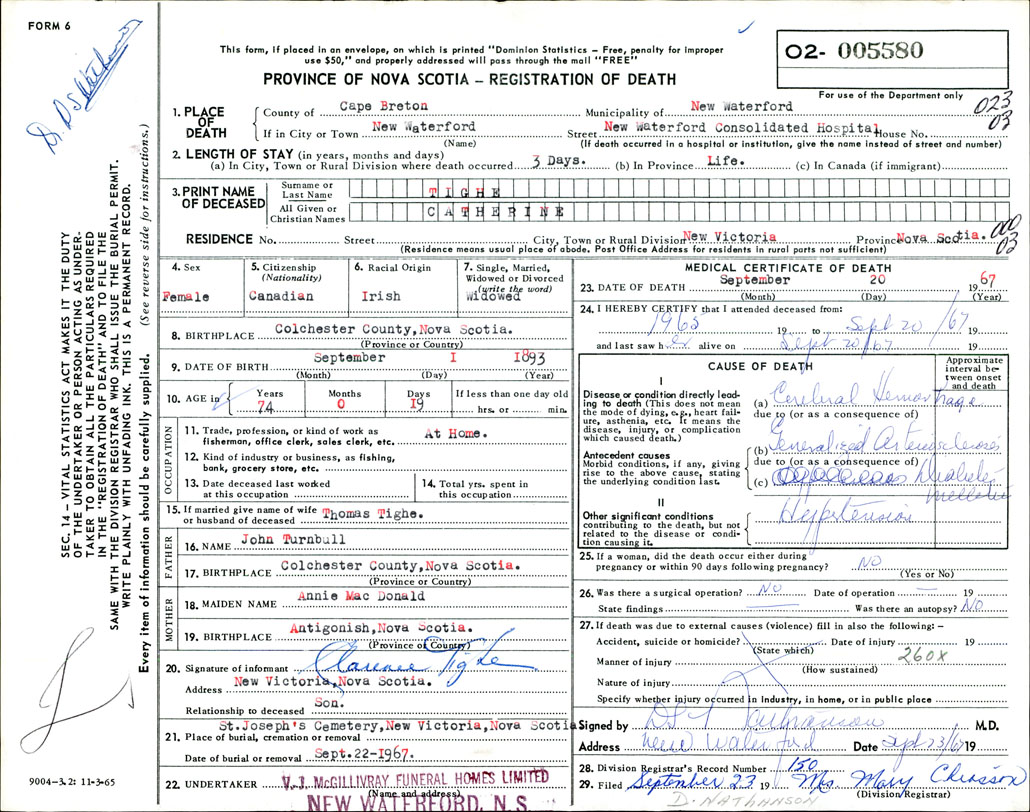 FORM 6
Dr. D S Nathanson
This form, if placed in an envelope, on which is printed "Dominion Statistics – Free, penalty for improper
use $50," and properly addressed will pass through the mail "FREE"
PROVINCE OF NOVA SCOTIA – REGISTRATION OF DEATH
02- 005580
For use of the Department only
023
03
1. PLACE OF DEATH
County of Cape Breton Municipality of New Waterford
If in City or Town New Waterford Street New Waterford Consolidated Hospital House No.
(Name) (If death occurred in a hospital or institution, give the name instead of street and number)
2. LENGTH OF STAY (in years, months and days)
(a) In City, Town or Rural Division where death occurred 3 Days. (b) In Province Life. (c) In Canada (if immigrant)
3. PRINT NAME OF DECEASED
Surname or Last Name TIGHE
All Given or Christian Names CATHERINE
RESIDENCE No. Street City, Town or Rural Division New Victoria Province Nova Scotia. 000
03
(Residence means usual place of abode. Post Office Address for residents in rural parts not sufficient)
4. Sex
Female
5. Citizenship
(Nationality)
Canadian
6. Racial Origin
Irish
7. Single, Married,
Widowed or Divorced
(write the word)
Widowed
8. BIRTHPLACE Colchester County,Nova Scotia.
(Province or Country)
9. DATE OF BIRTH September I I893
(Month) (Day) (Year)
10. AGE in
Years Months Days If less than one day old
74 0 I9 hrs. or min.
OCCUPATION
11. Trade, profession, or kind of work as
fisherman, office clerk, sales clerk, etc. At Home.
12. Kind of industry or business, as fishing,
bank, grocery store, etc.
13. Date deceased last worked
at this occupation
14. Total yrs. spent in
this occupation
15. If married give name of wife
or husband of deceased Thomas Tighe.
FATHER
16. NAME John Turnbull
17. BIRTHPLACE Colchester County,Nova Scotia.
(Province or Country)
MOTHER
18. MAIDEN NAME Annie Mac Donald
19. BIRTHPLACE Antigonish,Nova Scotia.
(Province or Country)
20. Signature of informant Clarence Tighe
Address New Victoria,Nova Scotia.
Relationship to deceased Son.
St.Joseph's Cemetery,New Victoria,Nova Scotia
21. Place of burial, cremation or removal
Date of burial or removal Sept.22-1967.
22. UNDERTAKER V.J. McGILLIVRAY FUNERAL HOMES LIMITED
(Name and address)
NEW WATERFORD, N.S.
MEDICAL CERTIFICATE OF DEATH
23. DATE OF DEATH September 20 1967
(Month) (Day) (Year)
24. I HEREBY CERTIFY that I attended deceased from:
1965 19 to Sept 20 /67 19
and last saw her alive on Sept 20/67 19
CAUSE OF DEATH
Approximate
interval be-
tween onset
and death
I
Disease or condition directly lead-
ing to death (This does not mean
the mode of dying, e.g., heart fail-
ure, asthenia, etc. It means the
disease, injury, or complication
which caused death.)
(a) Cerebral Hemorrhage
due to (or as a consequence of)
Antecedent causes
Morbid conditions, if any, giving
rise to the above cause, stating
the underlying condition last.
(b) Generalized Arteriosclerosis
due to (or as a consequence of)
(c) Diabetes
Mellitus
II
Other significant conditions
contributing to the death, but not
related to the disease or condi-
tion causing it.
Hypertension
25. If a woman, did the death occur either during
pregnancy or within 90 days following pregnancy? NO
(Yes or No)
26. Was there a surgical operation? NO Date of operation — 19
State findings — Was there an autopsy? NO
27. If death was due to external causes (violence) fill in also the following:-
Accident, suicide or homicide? Date of injury 19
(State which) 260X
Manner of injury
(How sustained)
Nature of injury
Specify whether injury occurred in industry, in home, or in public place
Signed by M.D.
Address New Waterford Date Sept 23/67 19
28. Division Registrar's Record Number 150
29. Filed September 23 19 Mrs. Mary Chiasson
(Division Registrar)
D. NATHANSON
SEC. 14 – VITAL STATISTICS ACT MAKES IT THE DUTY
OF THE UNDERTAKER OR PERSON ACTING AS UNDER-
TAKER TO OBTAIN ALL THE PARTICULARS REQUIRED
IN THE "REGISTRATION OF DEATH" AND TO FILE THE
SAME WITH THE DIVISION REGISTRAR WHO SHALL ISSUE THE BURIAL PERMIT.
WRITE PLAINLY WITH UNFADING INK. THIS IS A PERMANENT RECORD.
Every item of information should be carefully supplied. (See reverse side for instructions.)
9004-3.2: 11-3-65